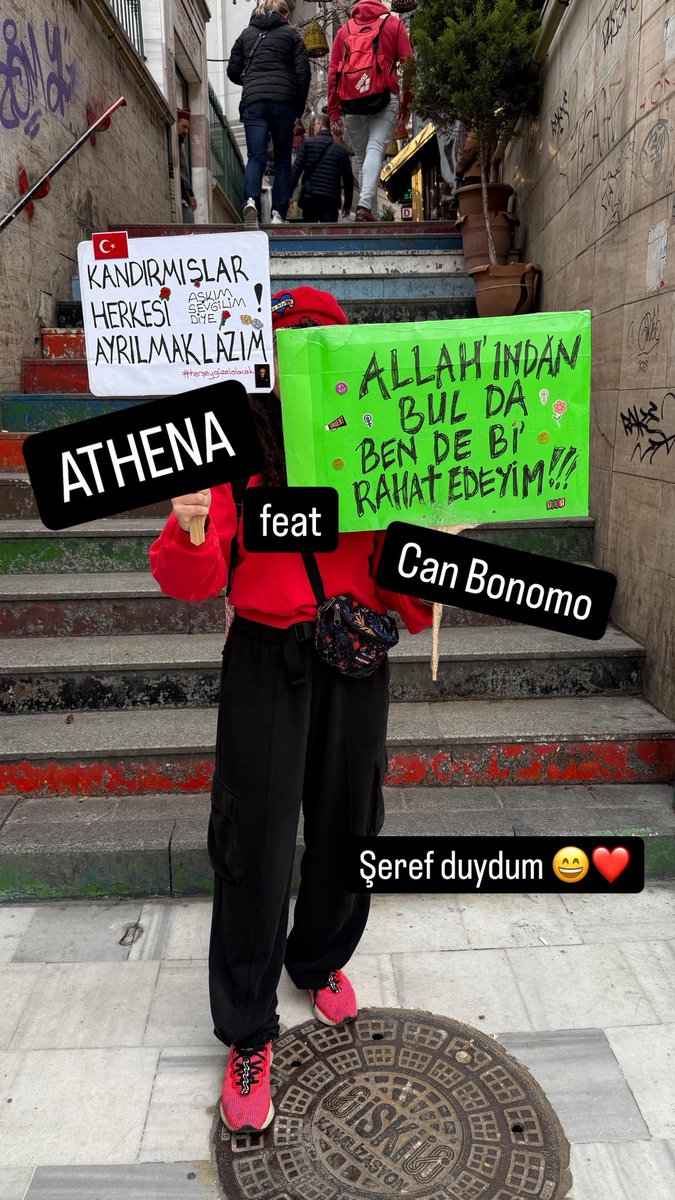 KANDIRMIŞLAR
HERKESİ
AŞKIM
SEVGİLİM
DİYE
!
AYRILMAK LAZIM
#herşeygüzelolacak
ALLAH'INDAN
BUL DA
BEN DE Bİ'
RAHAT EDEYİM!!!
ATHENA
feat
Can Bonomo
Şeref duydum 😄❤️
İSKİ
KANALİZASYON